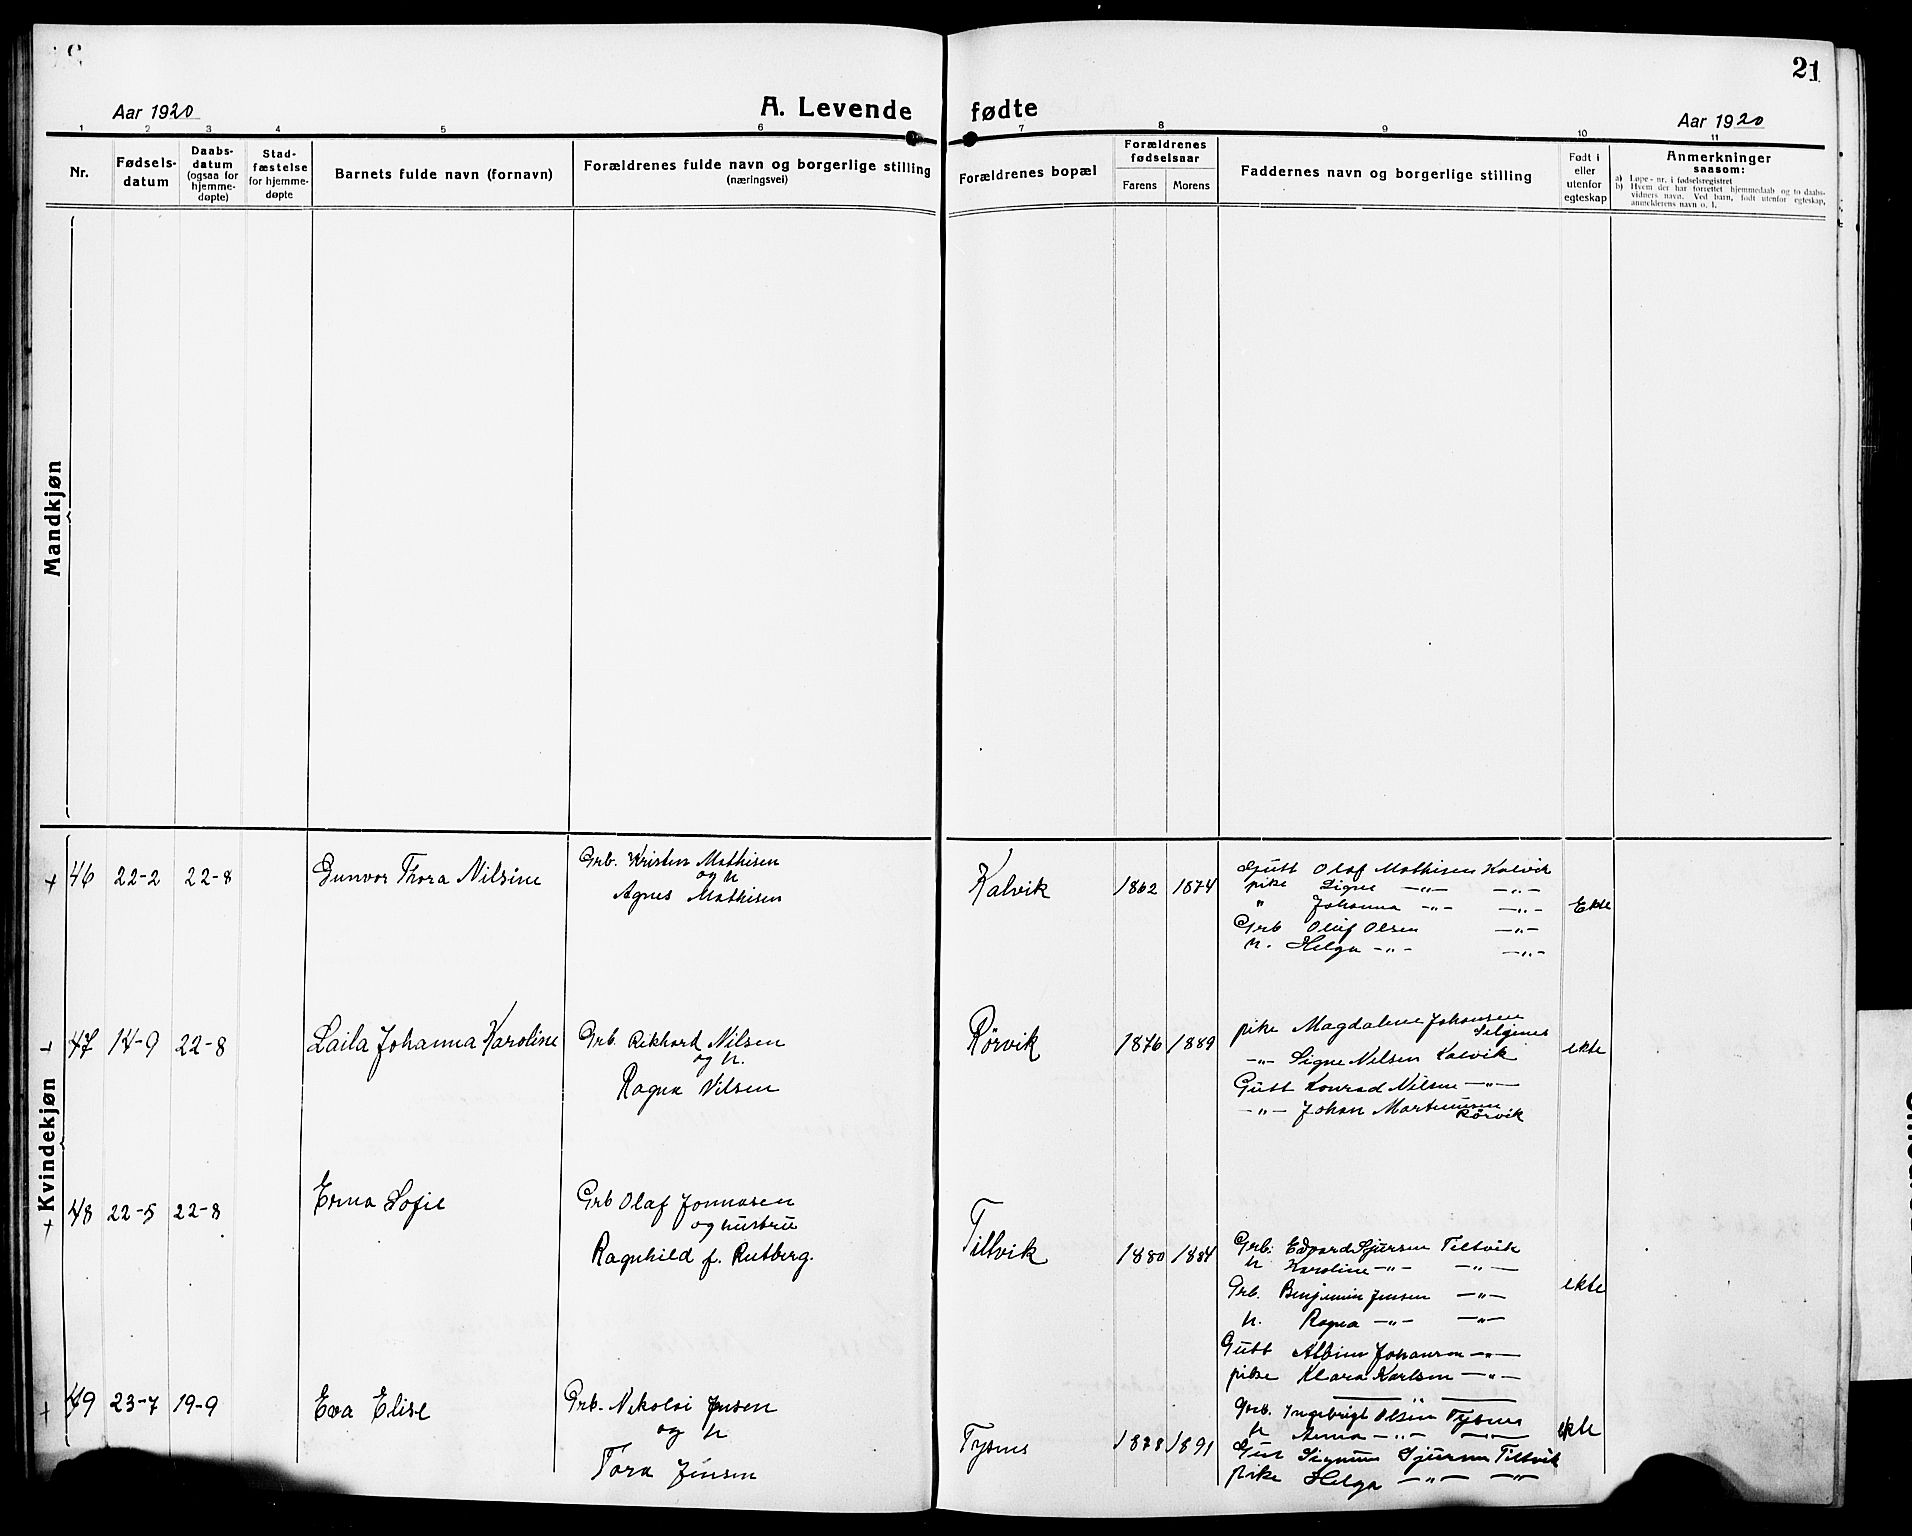 21
Aar 1920
A. Levende fødte
Aar 1920
1 2 3 4 5 6 7 8 9 10 11
Nr.
Fødsels-
datum
Daabs-
datum
(ogsaa for
hjemme-
døpte)
Stad-
fæstelse
for hjemme-
døpte
Barnets fulde navn (fornavn)
Forældrenes fulde navn og borgerlige stilling
(næringsvei)
Forældrenes bopæl
Forældrenes
fødselsaar
Farens Morens
Faddernes navn og borgerlige stilling
Født i
eller
utenfor
egteskap
Anmerkninger
saasom:
a) Løpe-nr. i fødselsregistret
b) Hvem der har forrettet hjemmedaab og to daabs-
vidners navn. Ved barn, født utenfor egteskap,
anmelderens navn o. l.
Mandkjøn
Kvindekjøn
+ 46 22-2 22-8 Gunvor Thora Nilsine
Grb. Kristen Mathisen
og h
Agnes Mathisen
Kalvik 1862 1874
Gutt Olaf Mathisen Kalvik
pike Signe -"- -"-
" Johanna -"- -"-
Grb Oluf Olsen -"-
h. Helga -"- -"-
Ekte
47 14-9 22-8 Laila Johanna Karoline
Grb. Rikhard Nilsen
og h.
Ragna Nilsen
Rørvik 1876 1889
pike Magdalene Johansen
-"- Signe Nilsen Kalvik
Gutt Konrad Nilsen -"-
-"- Johan Martinusen
Rørvik
ekte
+ 48 22-5 22-8 Erna Sofie
Grb Olaf Jonnasen
og hustru
Ragnhild f. Rutberg.
Tiltvik 1880 1884
Grb. Edvard Sjursen Tiltvik
h Karoline -"- -"-
Grb. Benjamin Jensen -"-
h. Ragna -"- -"-
Gutt Albin Johansen -"-
pike Klara Karlsen -"-
ekte
+ 49 23-7 19-9 Eva Elise
Grb. Nikolai Jensen
og h
Tora Jensen
Tysnes 1878 1891
Grb. Ingebrigt Olsen Tysnes
h Anna -"- -"-
Gut Sigmun Sjursen Tiltvik
pike Helga -"- -"-
ekte